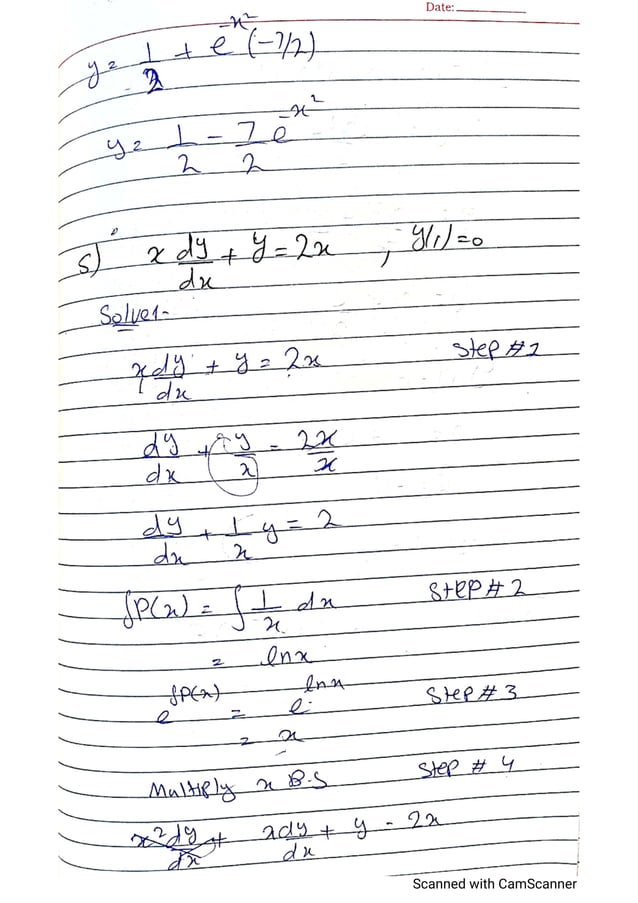 Date:
y = 1/2 + e^-x² (-7/2)
y = 1/2 - 7/2 e^-x²
5) x dy/dx + y = 2x , y(1)=0
Solve:-
x dy/dx + y = 2x Step #1
dy/dx + y/x = 2x/x
dy/dx + 1/x y = 2
∫P(x) = ∫ 1/x dx Step # 2
= lnx
e^∫P(x) = e^lnx Step # 3
= x
Multiply x B.S Step # 4
x² dy/dx + x dy/dx + y = 2x
Scanned with CamScanner